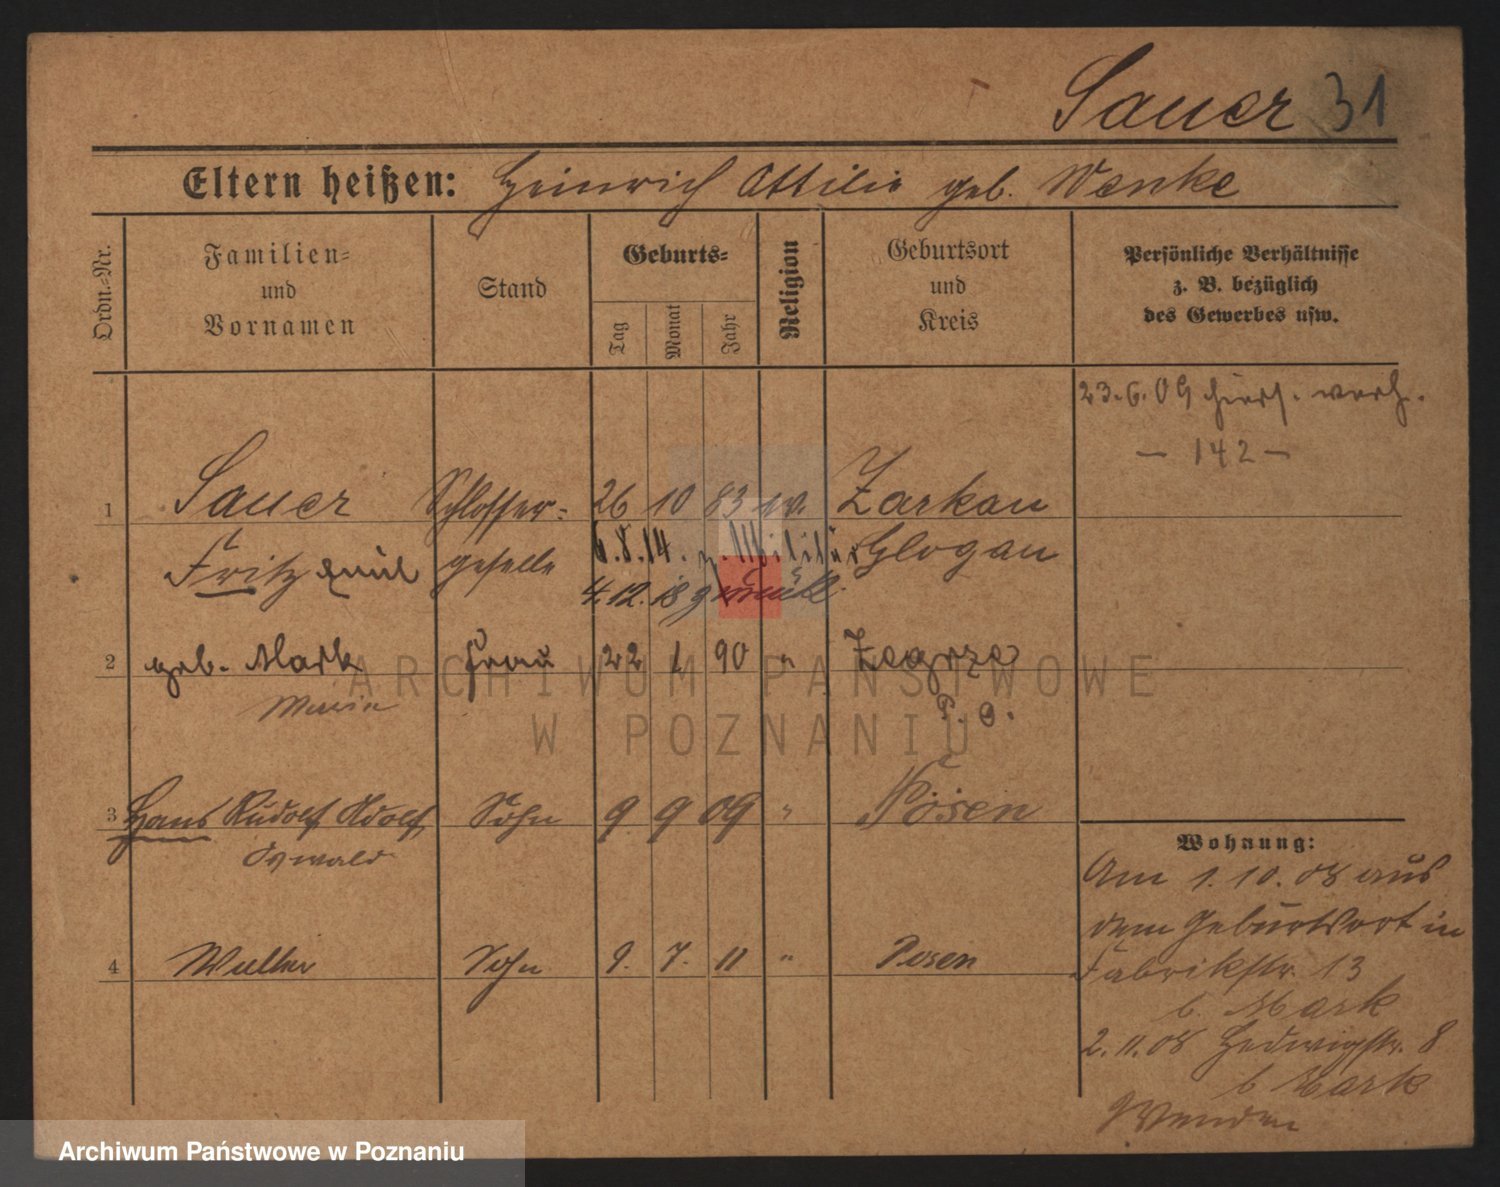 Sauer 31
Eltern heißen: Heinrich Ottilie geb. Wenke
Ordn.-Nr.
Familien-
und
Vornamen
Stand
Geburts-
Tag
Monat
Jahr
Religion
Geburtsort
und
Kreis
Persönliche Verhältnisse
z. B. bezüglich
des Gewerbes usw.
23.6.09 hier verh.
— 142 —
1 Sauer Schlosser- 26 10 83 ev. Zarkau
Fritz Emil geselle 6.8.14. z. Militär Glogau
4.12.18 zurück
2 geb. Mark Frau 22 1 90 " Zagrze
Maria P. O.
3 Hans Rudolf Adolf Sohn 9 9 09 " Posen
Oswald
4 Walter Sohn 9. 7. 11 " Posen
Wohnung:
Am 1.10.08 aus
dem Geburtsort in
Fabrikstr. 13
b. Mark
2.11.08 Hedwigstr. 8
b Mark
Wenden
ARCHIWUM PAŃSTWOWE
W POZNANIU
Archiwum Państwowe w Poznaniu